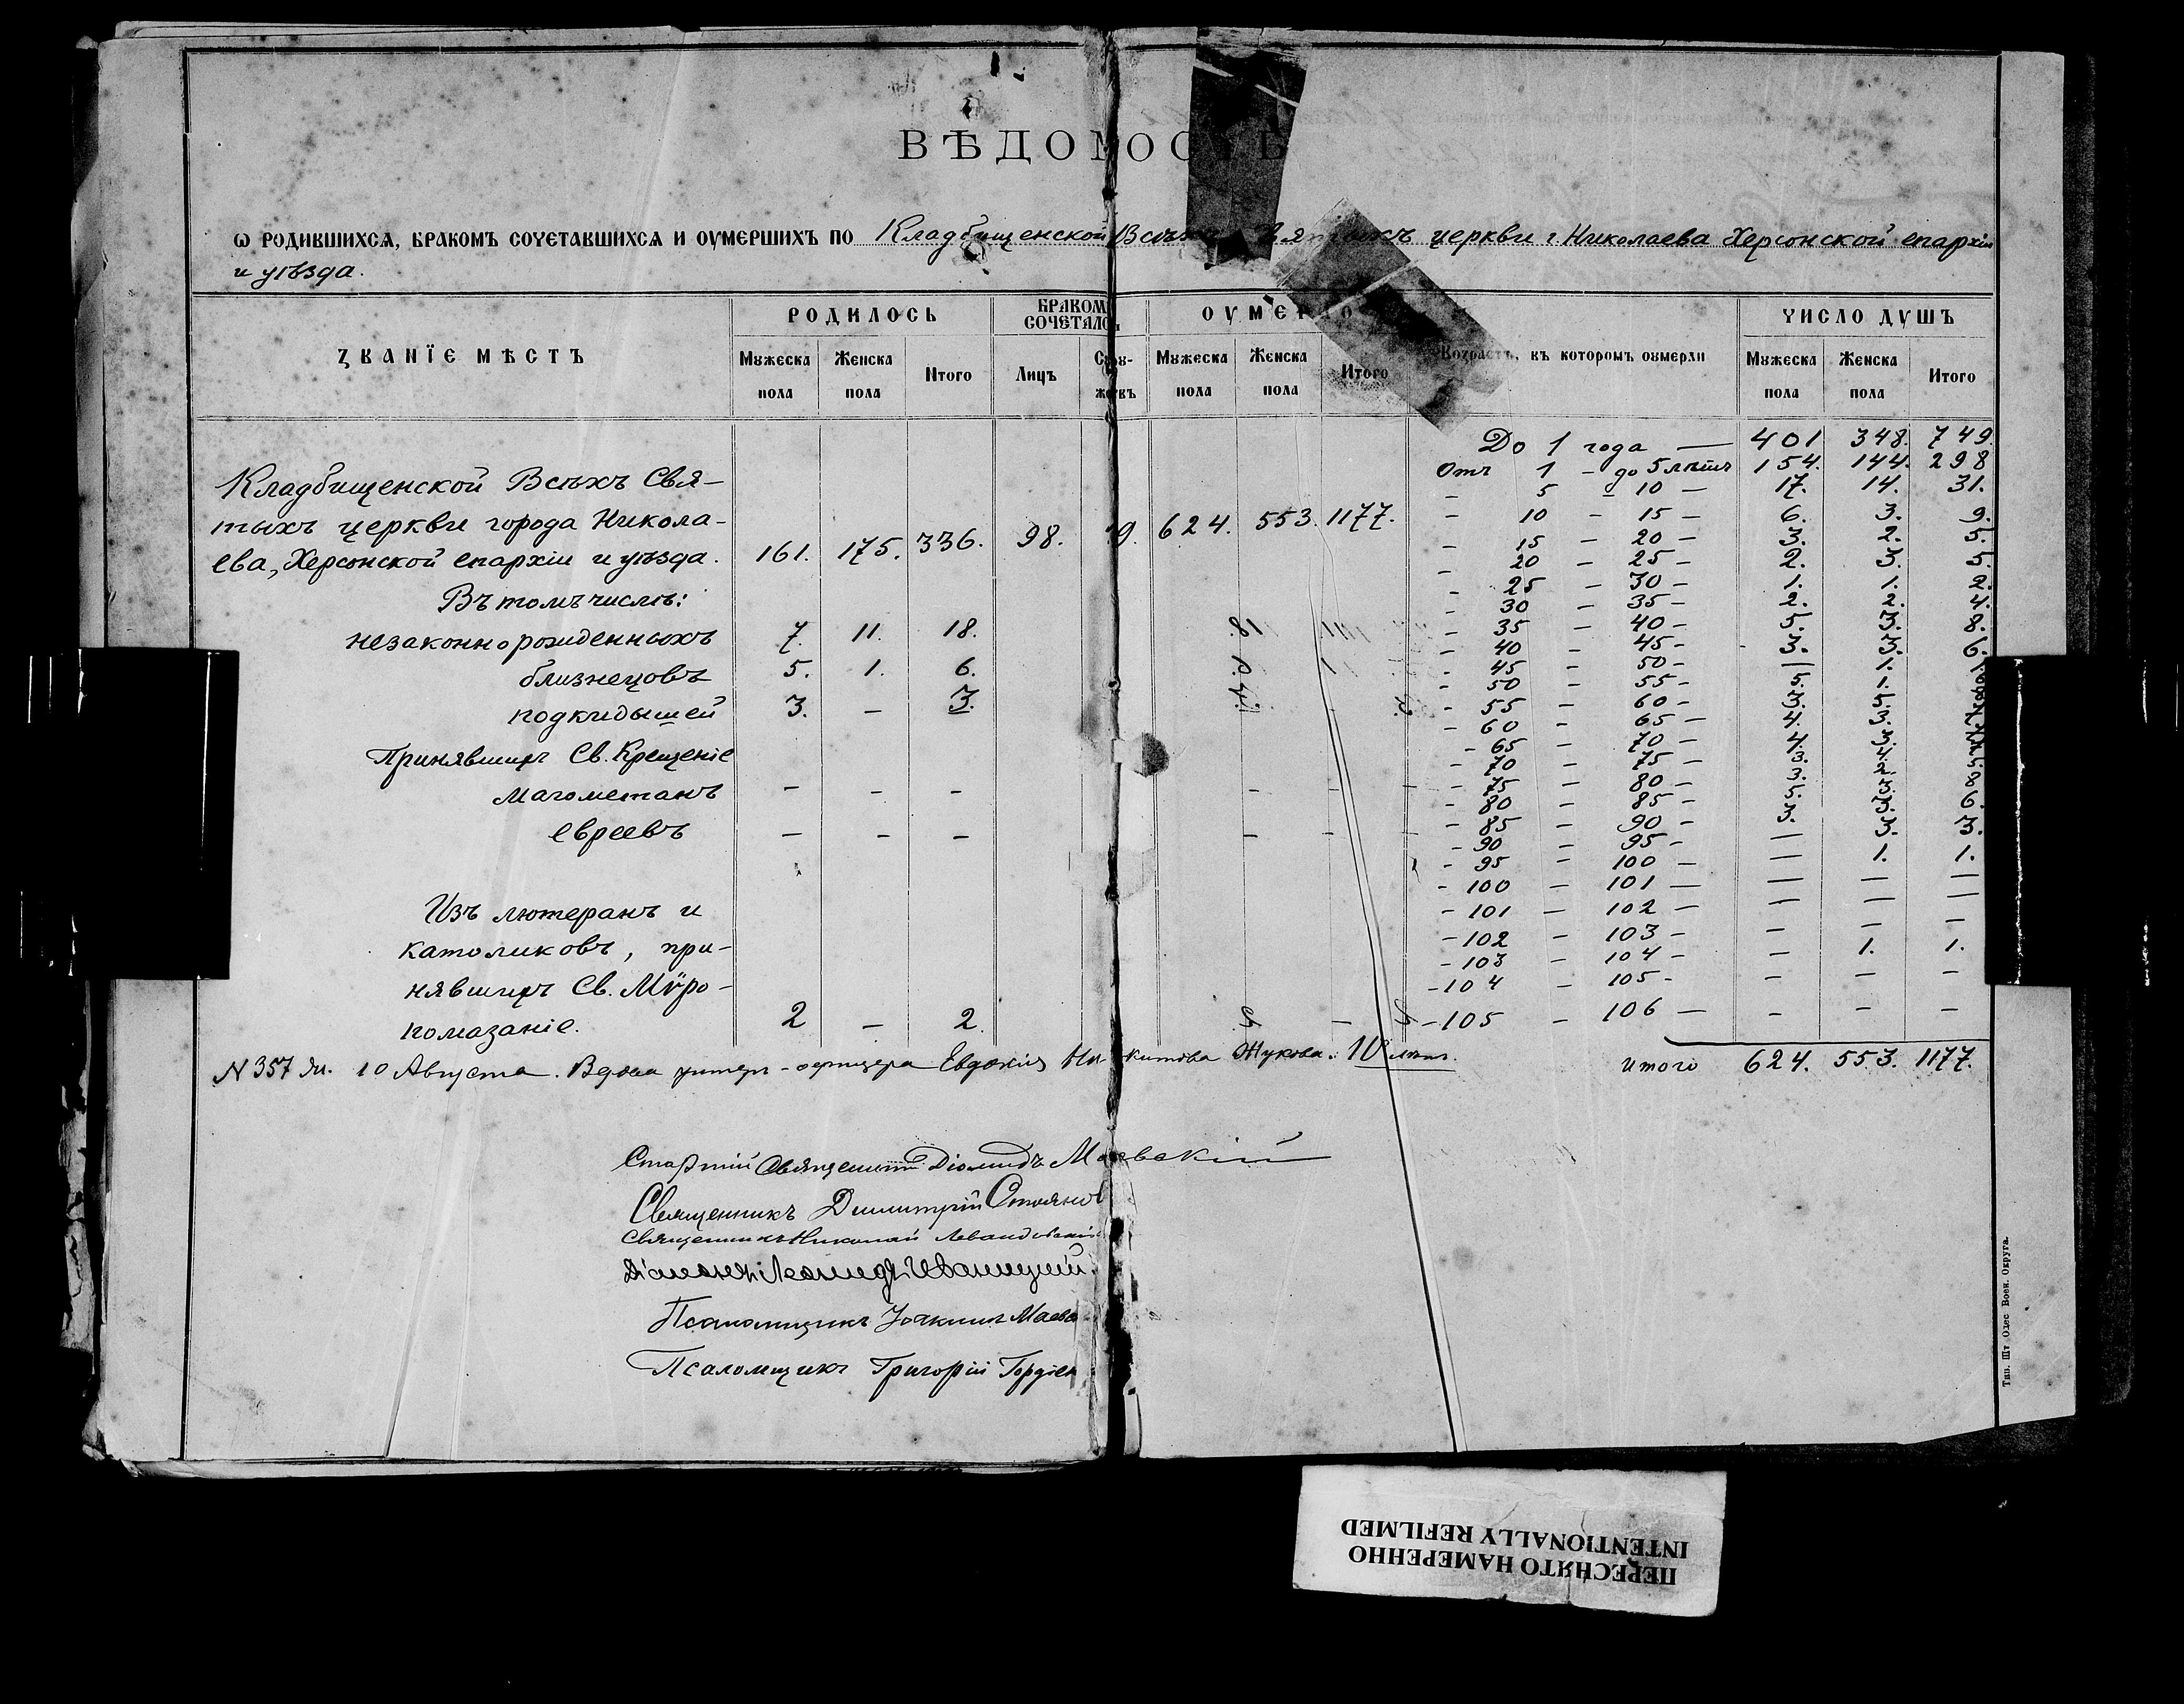 ВѢДОМОСТЬ
Ѡ РОДИВШИХСѦ, БРАКОМЪ СОЧЕТАВШИХСѦ И ОУМЕРШИХЪ ПО Кладбищенской Всѣхъ Святыхъ церкви г. Николаева Херсонской епархіи
и уѣзда.
ЗВАНЇЕ МѢСТЪ РОДИЛОСЬ БРАКОМЪ СОЧЕТАЛОСЬ ОУМЕРЛО Возрастъ, въ которомъ оумерли ЧИСЛО ДУШЪ
Мужеска пола Женска пола Итого Лицъ Мужеска пола Женска пола Итого Мужеска пола Женска пола Итого
Кладбищенской Всѣхъ Свя-
тыхъ церкви города Никола-
ева, Херсонской епархіи и уѣзда. 161. 175. 336. 98. 9. 624. 553. 1177.
Въ томъ числѣ:
незаконнорожденныхъ 7. 11. 18.
близнецовъ 5. 1. 6.
подкидышей 3. — 3.
Принявшихъ Св. Крещеніе
Магометанъ — — — — — —
евреевъ — — — — — —
Изъ лютеранъ и
католиковъ, при-
нявшихъ Св. Мѵро-
помазаніе. 2 — 2.
До 1 года — 401 348. 749.
Отъ 1 — до 5 лѣтъ 154. 144. 298
— 5 — 10 — 17. 14. 31.
— 10 — 15 — 6. 3. 9.
— 15 — 20 — 3. 2. 5.
— 20 — 25 — 2. 3. 5.
— 25 — 30 — 1. 1. 2.
— 30 — 35 — 2. 2. 4.
— 35 — 40 — 5. 3. 8.
— 40 — 45 — 3. 3. 6.
— 45 — 50 — — 1.
— 50 — 55 — 5. 1.
— 55 — 60 — 3. 5.
— 60 — 65 — 4. 3.
— 65 — 70 — 4. 3.
— 70 — 75 — 3. 4.
— 75 — 80 — 3. 2.
— 80 — 85 — 5. 3. 8
— 85 — 90 — 3. 3. 6.
— 90 — 95 — — 3. 3.
— 95 — 100 — — 1. 1.
— 100 — 101 — — — —
— 101 — 102 — — — —
— 102 — 103 — — — —
— 103 — 104 — — 1. 1.
— 104 — 105 — — — —
— 105 — 106 — — — —
Итого 624. 553. 1177.
N 357 10 Августа. Вдова унтеръ-офицера Евдокія Никитова Жукова.
Старшій Священникъ Діомидъ Маевскій
Священникъ Димитрій Стоянов
Священникъ Николай Левандовскій
Діаконъ Леонидъ Иваницкій.
Псаломщикъ Іоакимъ Маевс
Псаломщикъ Григорій Гордіен
Тип. Шт Одес Воен. Округа.
ПЕРЕСНЯТО НАМЕРЕННО
INTENTIONALLY REFILMED